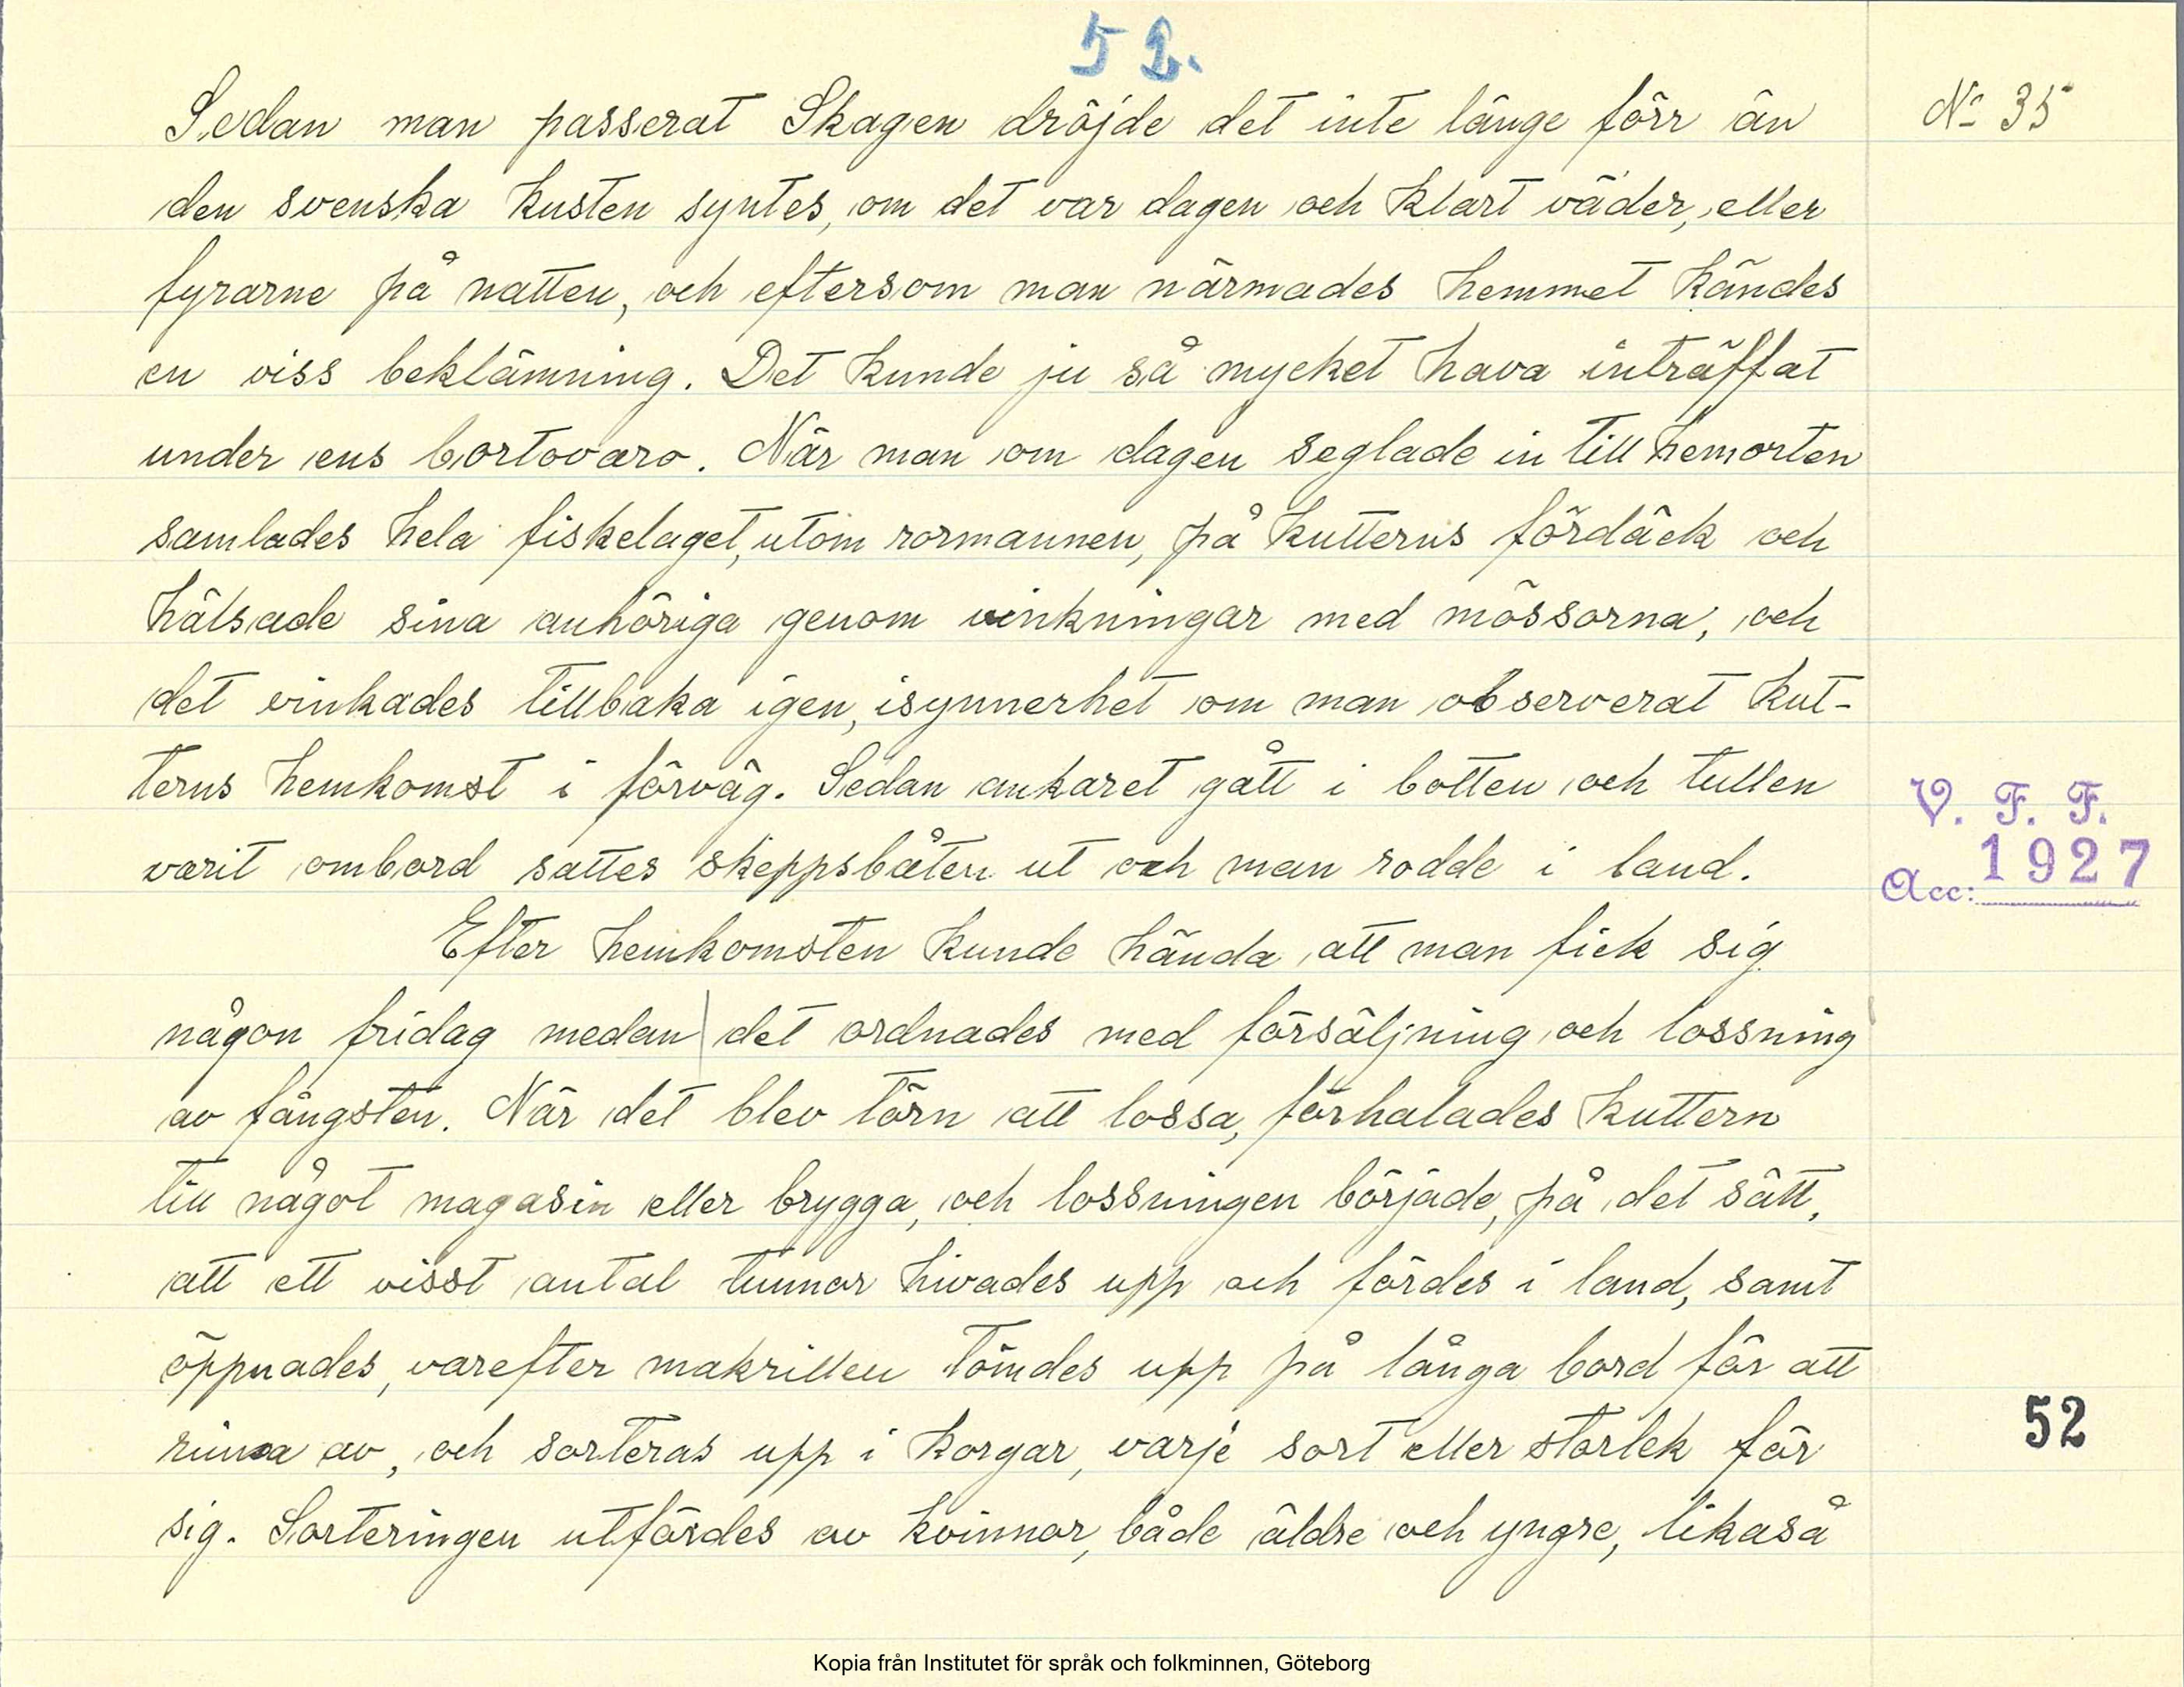 52.
Sedan man passerat Skagen dröjde det inte länge förr än
No 35
den svenska kusten syntes, om det var dagen och klart väder, eller
fyrarne på natten, och eftersom man närmades hemmet kändes
en viss beklämning. Det kunde ju så mycket hava inträffat
under ens bortovaro. När man om dagen seglade in till hemorten
samlades hela fiskelaget, utom rormannen, på kutterns fördäck och
hälsade sina anhöriga genom vinkningar med mössorna, och
det vinkades tillbaka igen, isynnerhet om man observerat kut-
terns hemkomst i förväg. Sedan ankaret gått i botten och tullen
V. F. F.
varit ombord sattes skeppsbåten ut och man rodde i land.
Acc: 1927
Efter hemkomsten kunde hända att man fick sig
någon fridag medan det ordnades med försäljning och lossning
av fångsten. När det blev törn att lossa, förhalades kuttern
till något magasin eller brygga, och lossningen började, på det sätt,
att ett visst antal tunnor hivades upp och fördes i land, samt
öppnades, varefter makrillen tömdes upp på långa bord för att
rinna av, och sorteras upp i korgar, varje sort eller storlek för
52
sig. Sorteringen utfördes av kvinnor, både äldre och yngre, likaså
Kopia från Institutet för språk och folkminnen, Göteborg